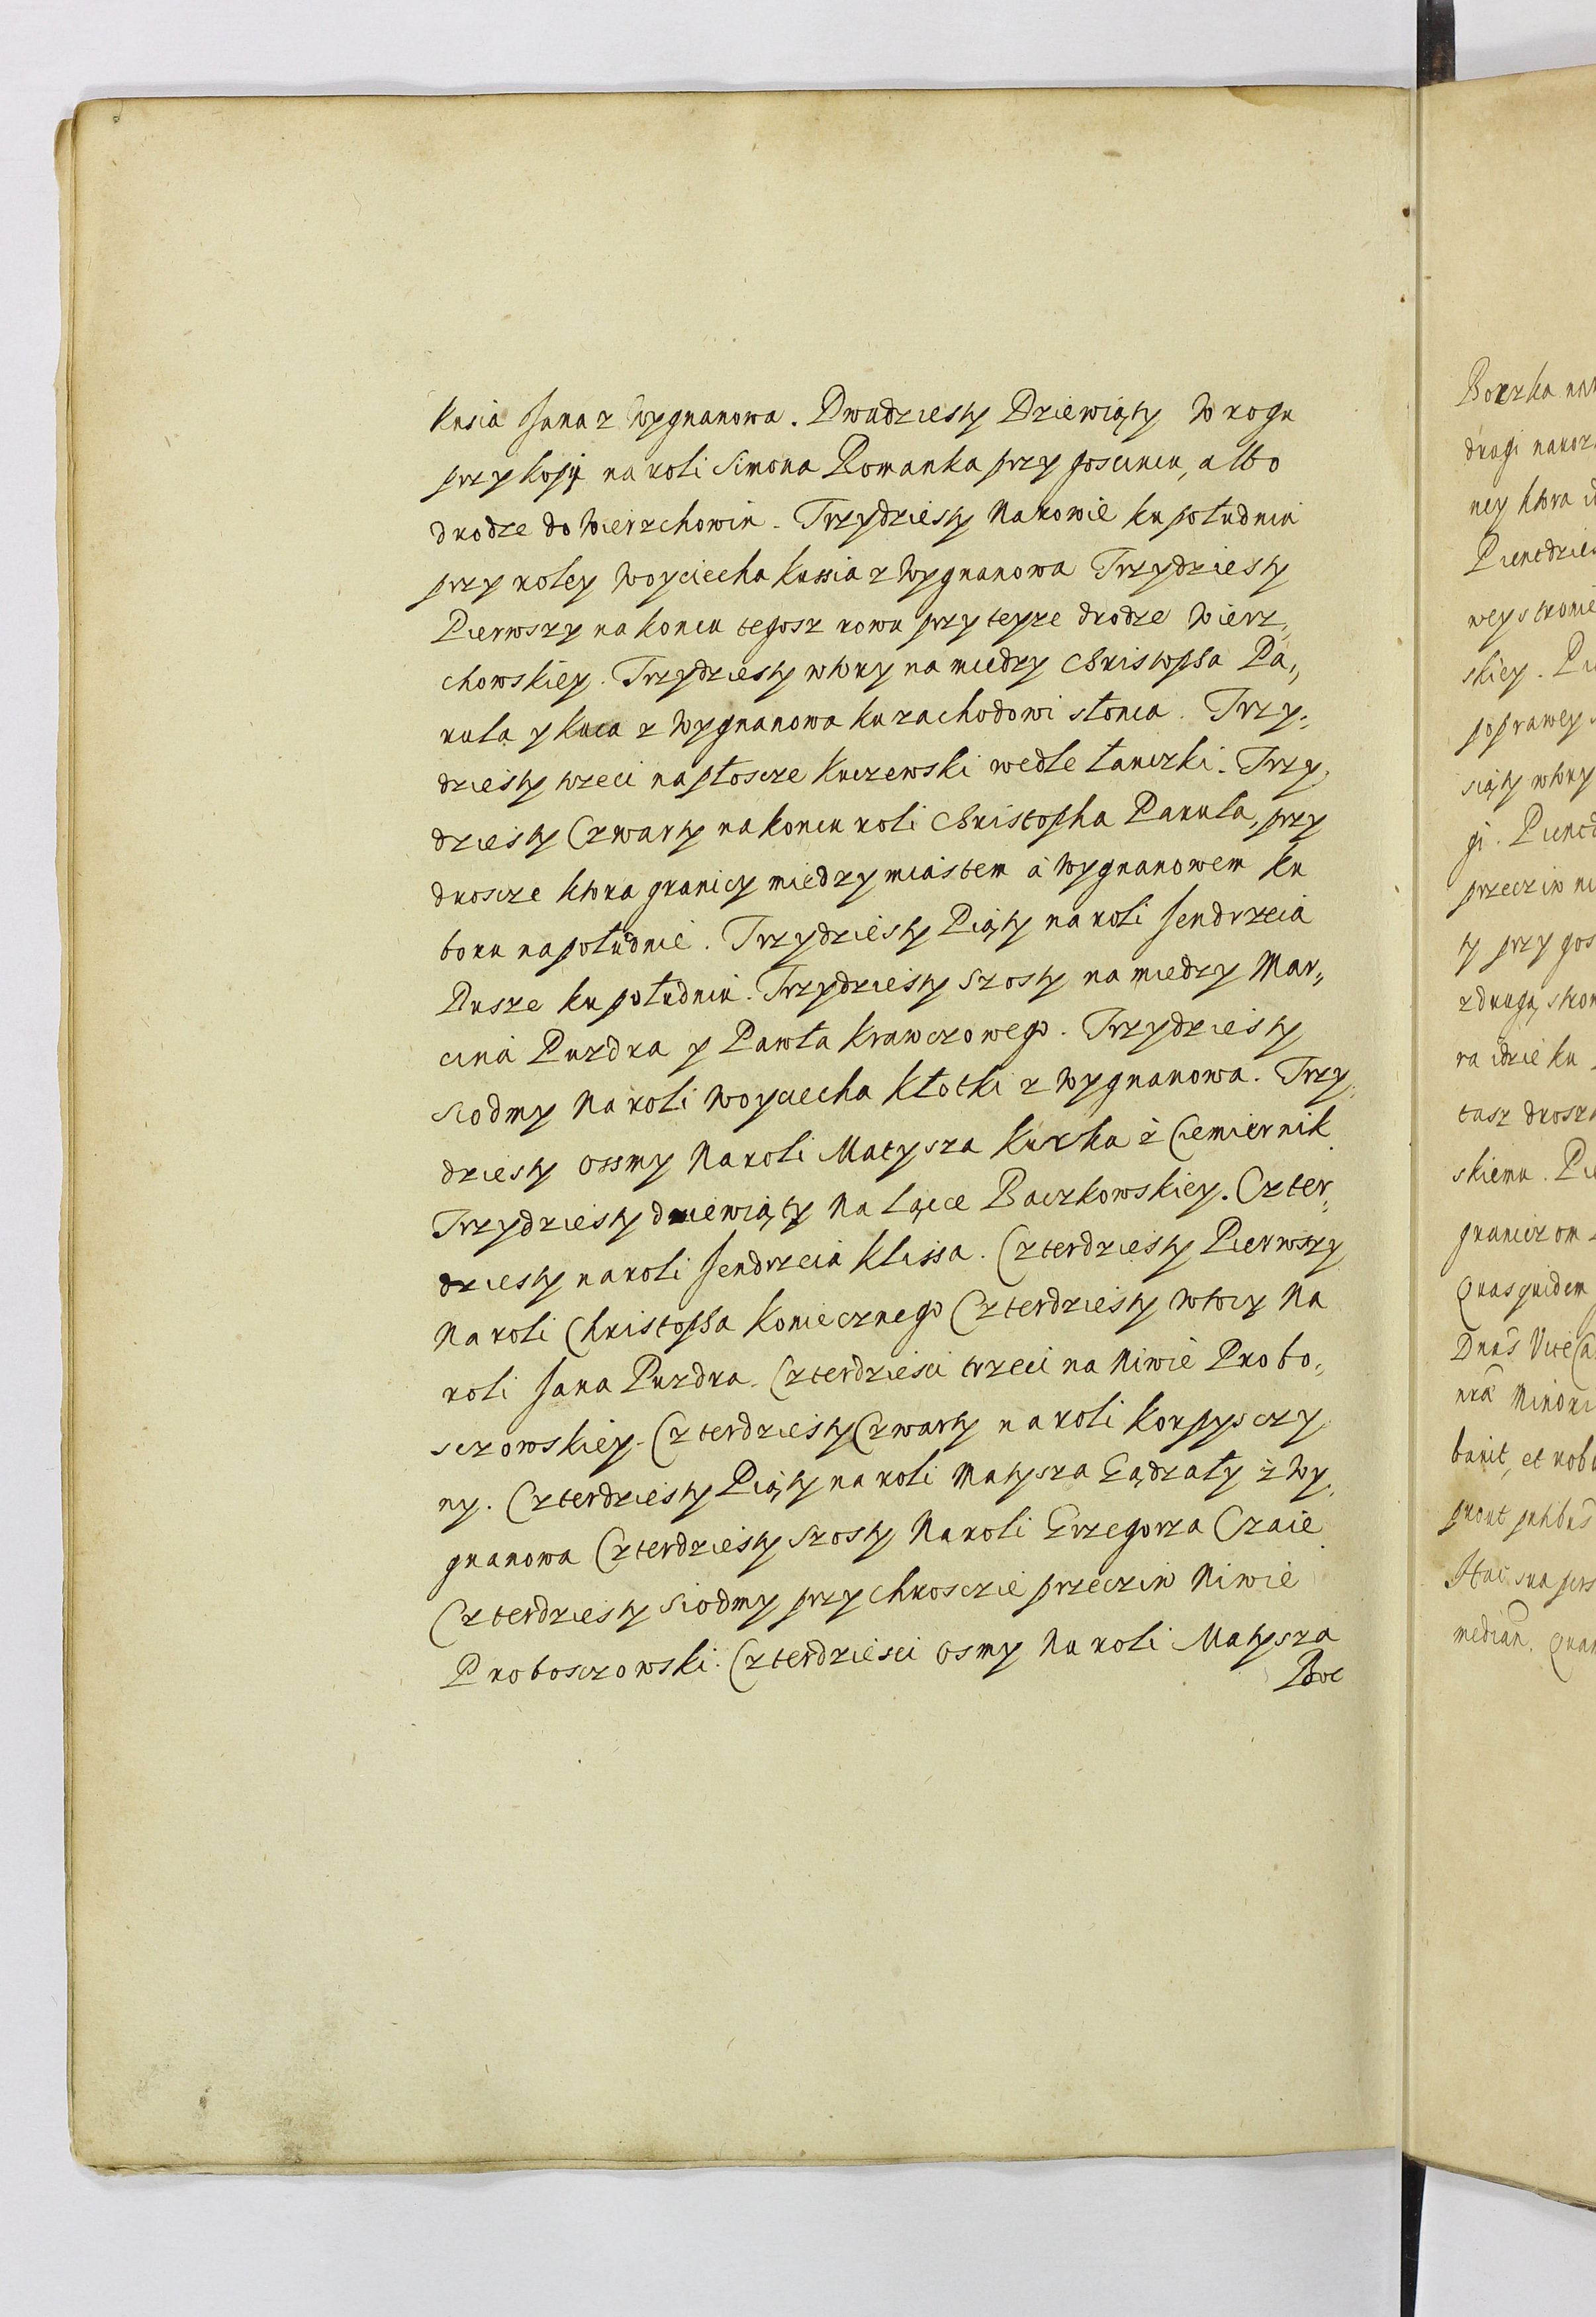 Kusia Jana z Wygnanowa. Dwudziesty Dziewiąty W rogu
przy kopy na roli Simona Romanka przy goscincu, albo
drodze do Wierzchowin. Trzydziesty Na rowie ku południu
przy roley Woyciecha Kussia z Wygnanowa Trzydziesty
Pierwszy na koncu tegosz rowu przy teyze drodze Wierz,,
chowskiey. Trzydziesty wtory na miedzy Christopha Pa,,
rula y Kuca z Wygnanowa ku zachodowi słonca. Trzy,,
dziesty trzeci na płoscze Kuczewski wedle łanczki. Trzy,
dziesty Czwarty na koncu roli Christopha Parula, przy
droscze ktora granicy miedzy miastem a Wygnanowem ku
boru na południe. Trzydziesty Piąty na roli Jendrzeia
Dusze ku południu. Trzydziesty Szosty na miedzy Mar,,
cina Puzdra y Pawła Krawczowego. Trzydziesty
Siodmy Na roli Woyciecha Kłotki z Wygnanowa. Trzy,
dziesty ossmy Na roli Matysza Kurka z Ciemiernik
Trzydziesty dziewiąty Na Lące Baczkowskiey. Czter,,
dziesty na roli Jendrzeia Klissa. Czterdziesty Pierwszy
Na roli Christopha Koniecznego Czterdziesty Wtory Na
roli Jana Puzdra. Czterdziesci trzeci na Niwie Probo,,
sczowskiey. Czterdziesty Czwarty na roli Korpysczy
ny. Czterdziesty Piąty na roli Matysza Gądzały z Wy,
gnanowa Czterdziesty Szosty Na roli Grzegorza Czaie
Czterdziesty Siodmy przy chrosczie przeciw Niwie
Probosczowski. Czterdziesci osmy Na roli Matysza
Boc
Boczka na
drugi na
ney ktora id
Piencdzies
wey stronie
skiey. Pi
po prawey
siąty wtory
gi. Piencd
przeciw ni
ty przy gos
z drugą stron
ra idzie ku
tasz drosz
skiemu. Pie
graniczom
Quas quidem
Dnus Vice Ca
nra Minori
bavit, et rob
prout
Hac sua pers
median. Quam